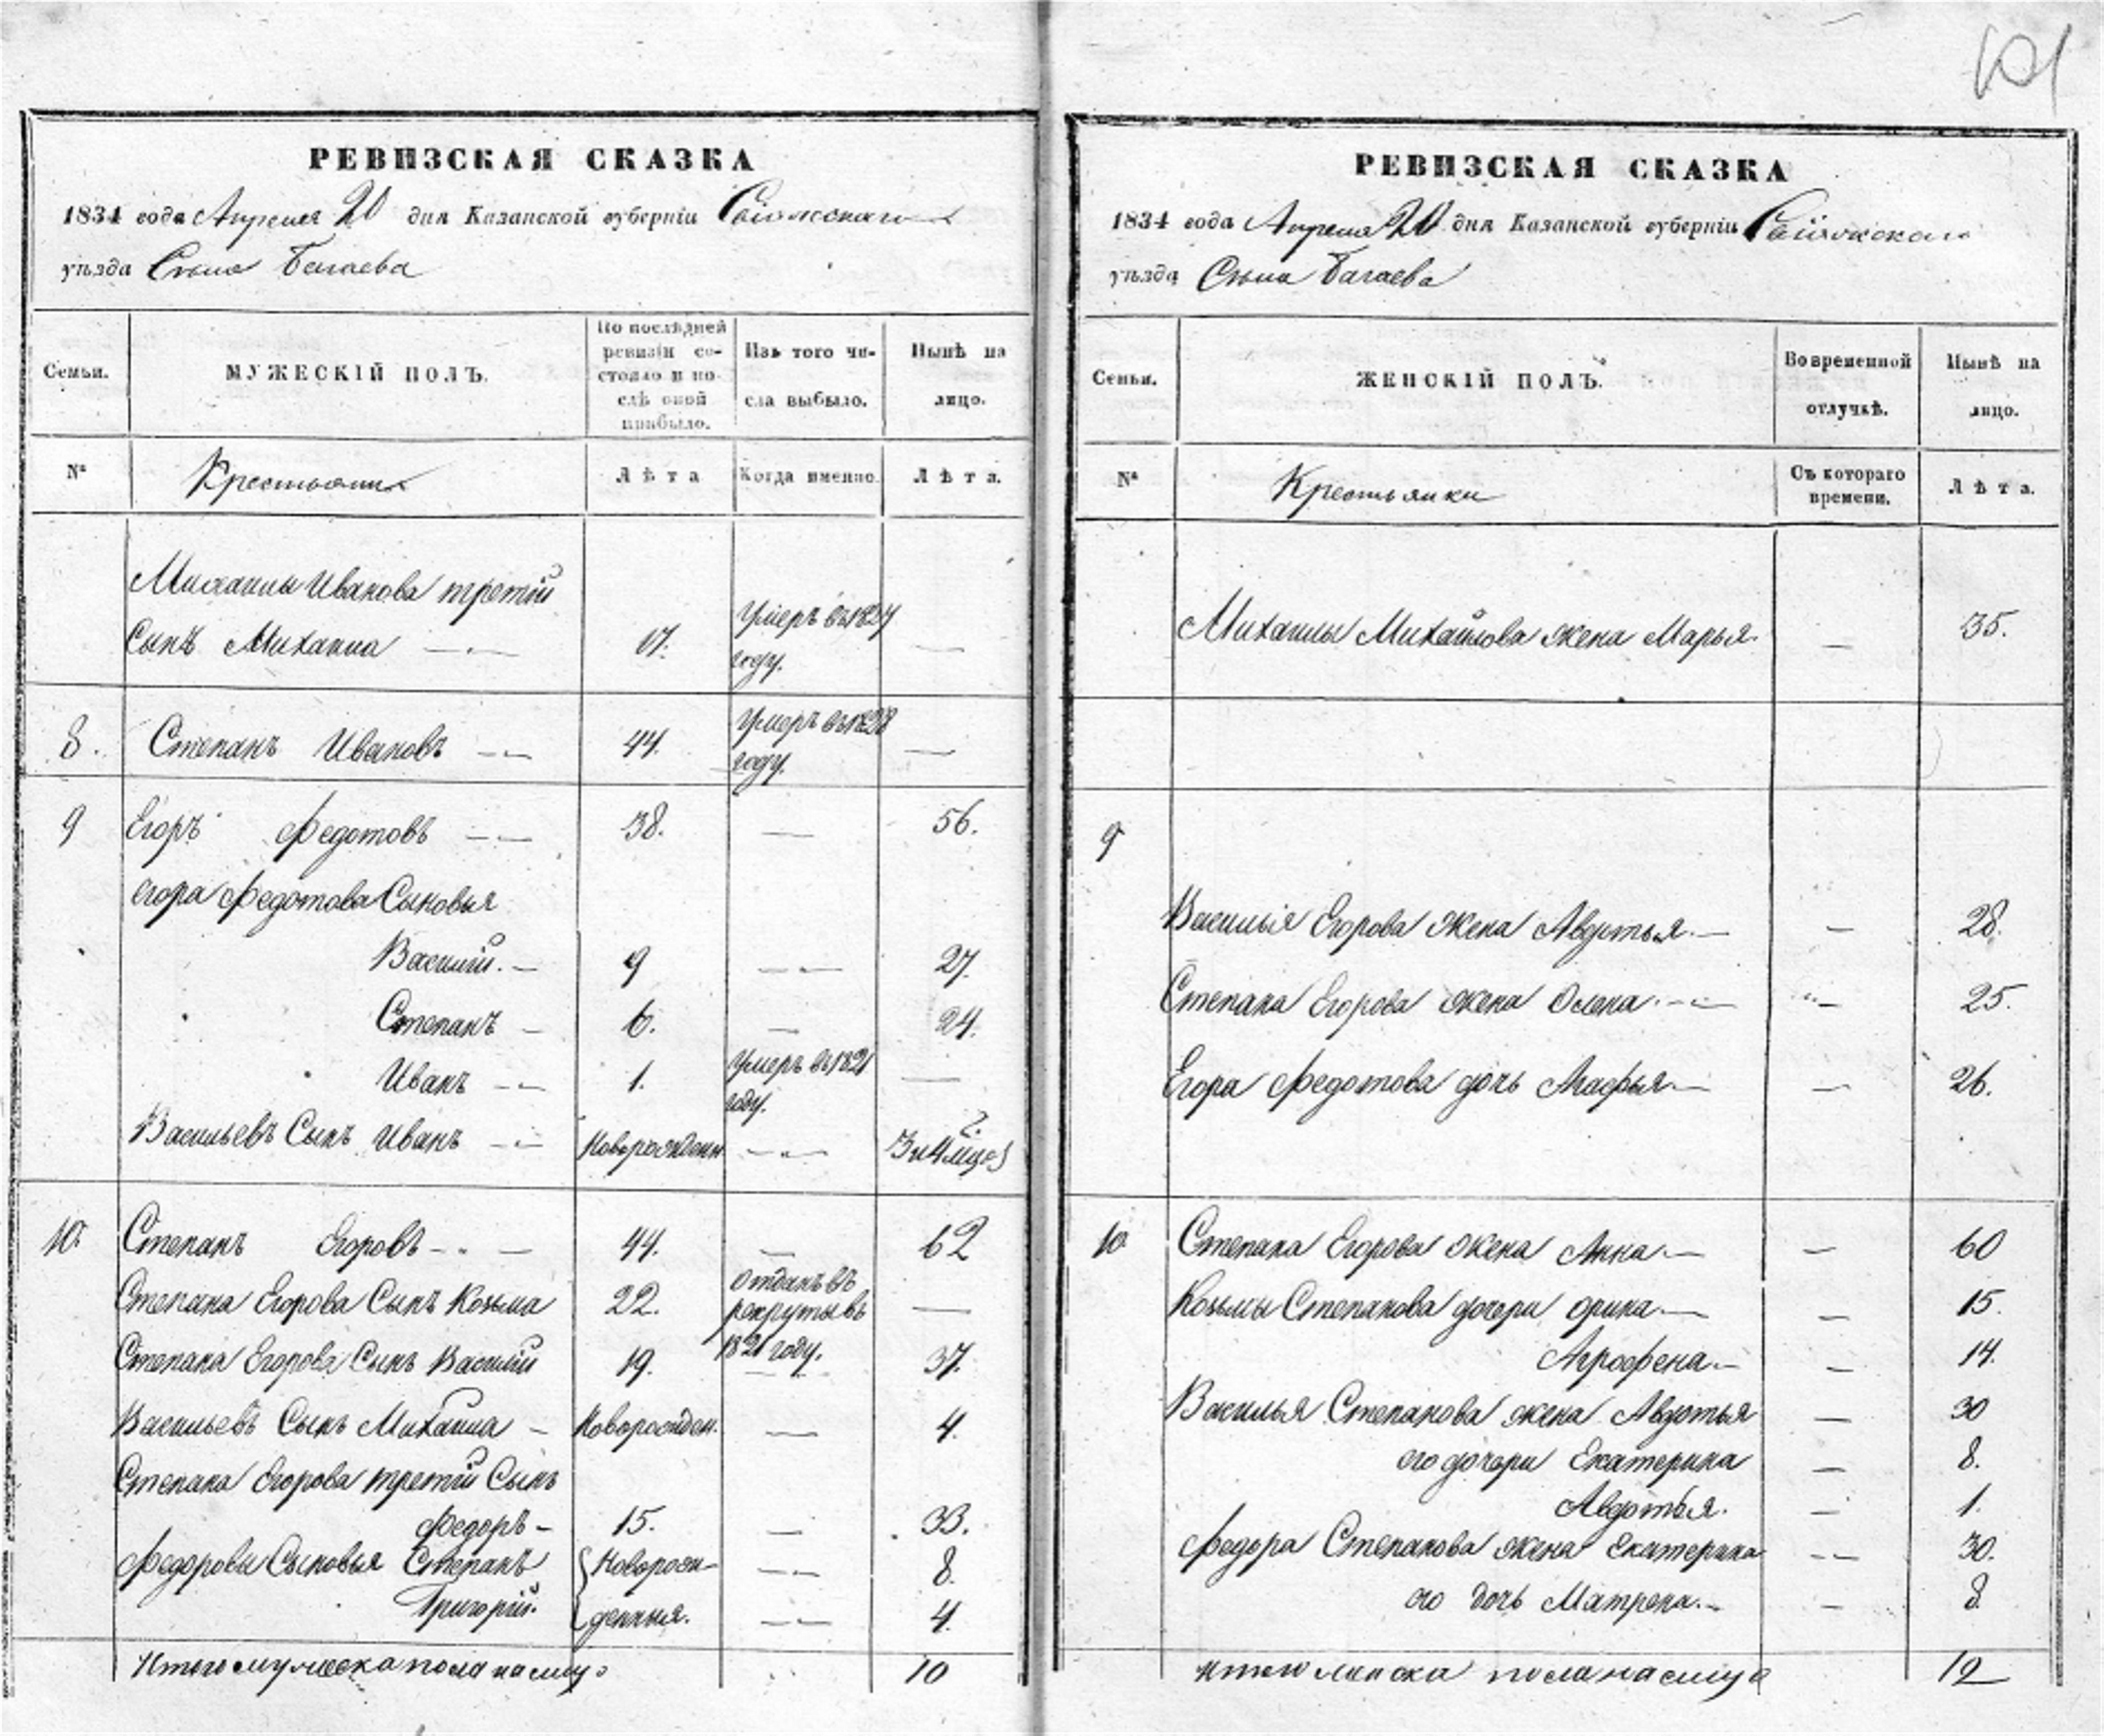 101
РЕВИЗСКАЯ СКАЗКА
1834 года Апреля 20 дня Казанской губерніи
уѣзда Сѣла Багаева
Семьи.
МУЖЕСКІЙ ПОЛЪ.
По послѣдней ревизіи состояло и послѣ оной прибыло.
Изъ того числа выбыло.
Нынѣ на лицо.
№
Крестьяникъ
Лѣта
Когда именно.
Лѣта.
Михаилы Иванова третій
Сынъ Михаила 17. Умеръ въ 1824 году. —
8. Степанъ Ивановъ 44. Умеръ въ 1828 году. —
9 Егоръ Федотовъ 38. — 56.
Егора Федотова Сыновья
Василій. 9 — 27.
Степанъ 6. — 24.
Иванъ 1. Умеръ въ 1821 году. —
Васильевъ Сынъ Иванъ Новорожден — 3 и 4 мцоз
10. Степанъ Егоровъ 44. — 62
Степана Егорова Сынъ Козьма 22. Отданъ въ рекруты въ 1821 году. —
Степана Егорова Сынъ Василій 19. — 37.
Васильевъ Сынъ Михаила Новорожден. — 4.
Степана Егорова третій Сынъ
Федоръ 15. — 33.
Федоровы Сыновья Степанъ Новорож- — 8.
Григорій. денныя. — 4.
Итого мужеска пола на лицо 10
РЕВИЗСКАЯ СКАЗКА
1834 года Апреля 20 дня Казанской губерніи
уѣзда Сѣла Багаева
Семьи.
ЖЕНСКІЙ ПОЛЪ.
Во временной отлучкѣ.
Нынѣ на лицо.
№
Крестьянки
Съ котораго времени.
Лѣта.
Михаилы Михайлова жена Марья — 35.
9
Василья Егорова жена Авдотья — 28.
Степана Егорова жена Олена — 25.
Егора Федотова дочь Агафья — 26.
10 Степана Егорова жена Анна — 60
Козьмы Степанова дочери Орина — 15.
Агрофена — 14.
Василья Степанова жена Авдотья — 30
его дочери Екатерина — 8.
Авдотья. — 1.
Федора Степанова жена Екатерина — 30.
его дочь Матрена — 8.
Итого женска пола на лицо 12